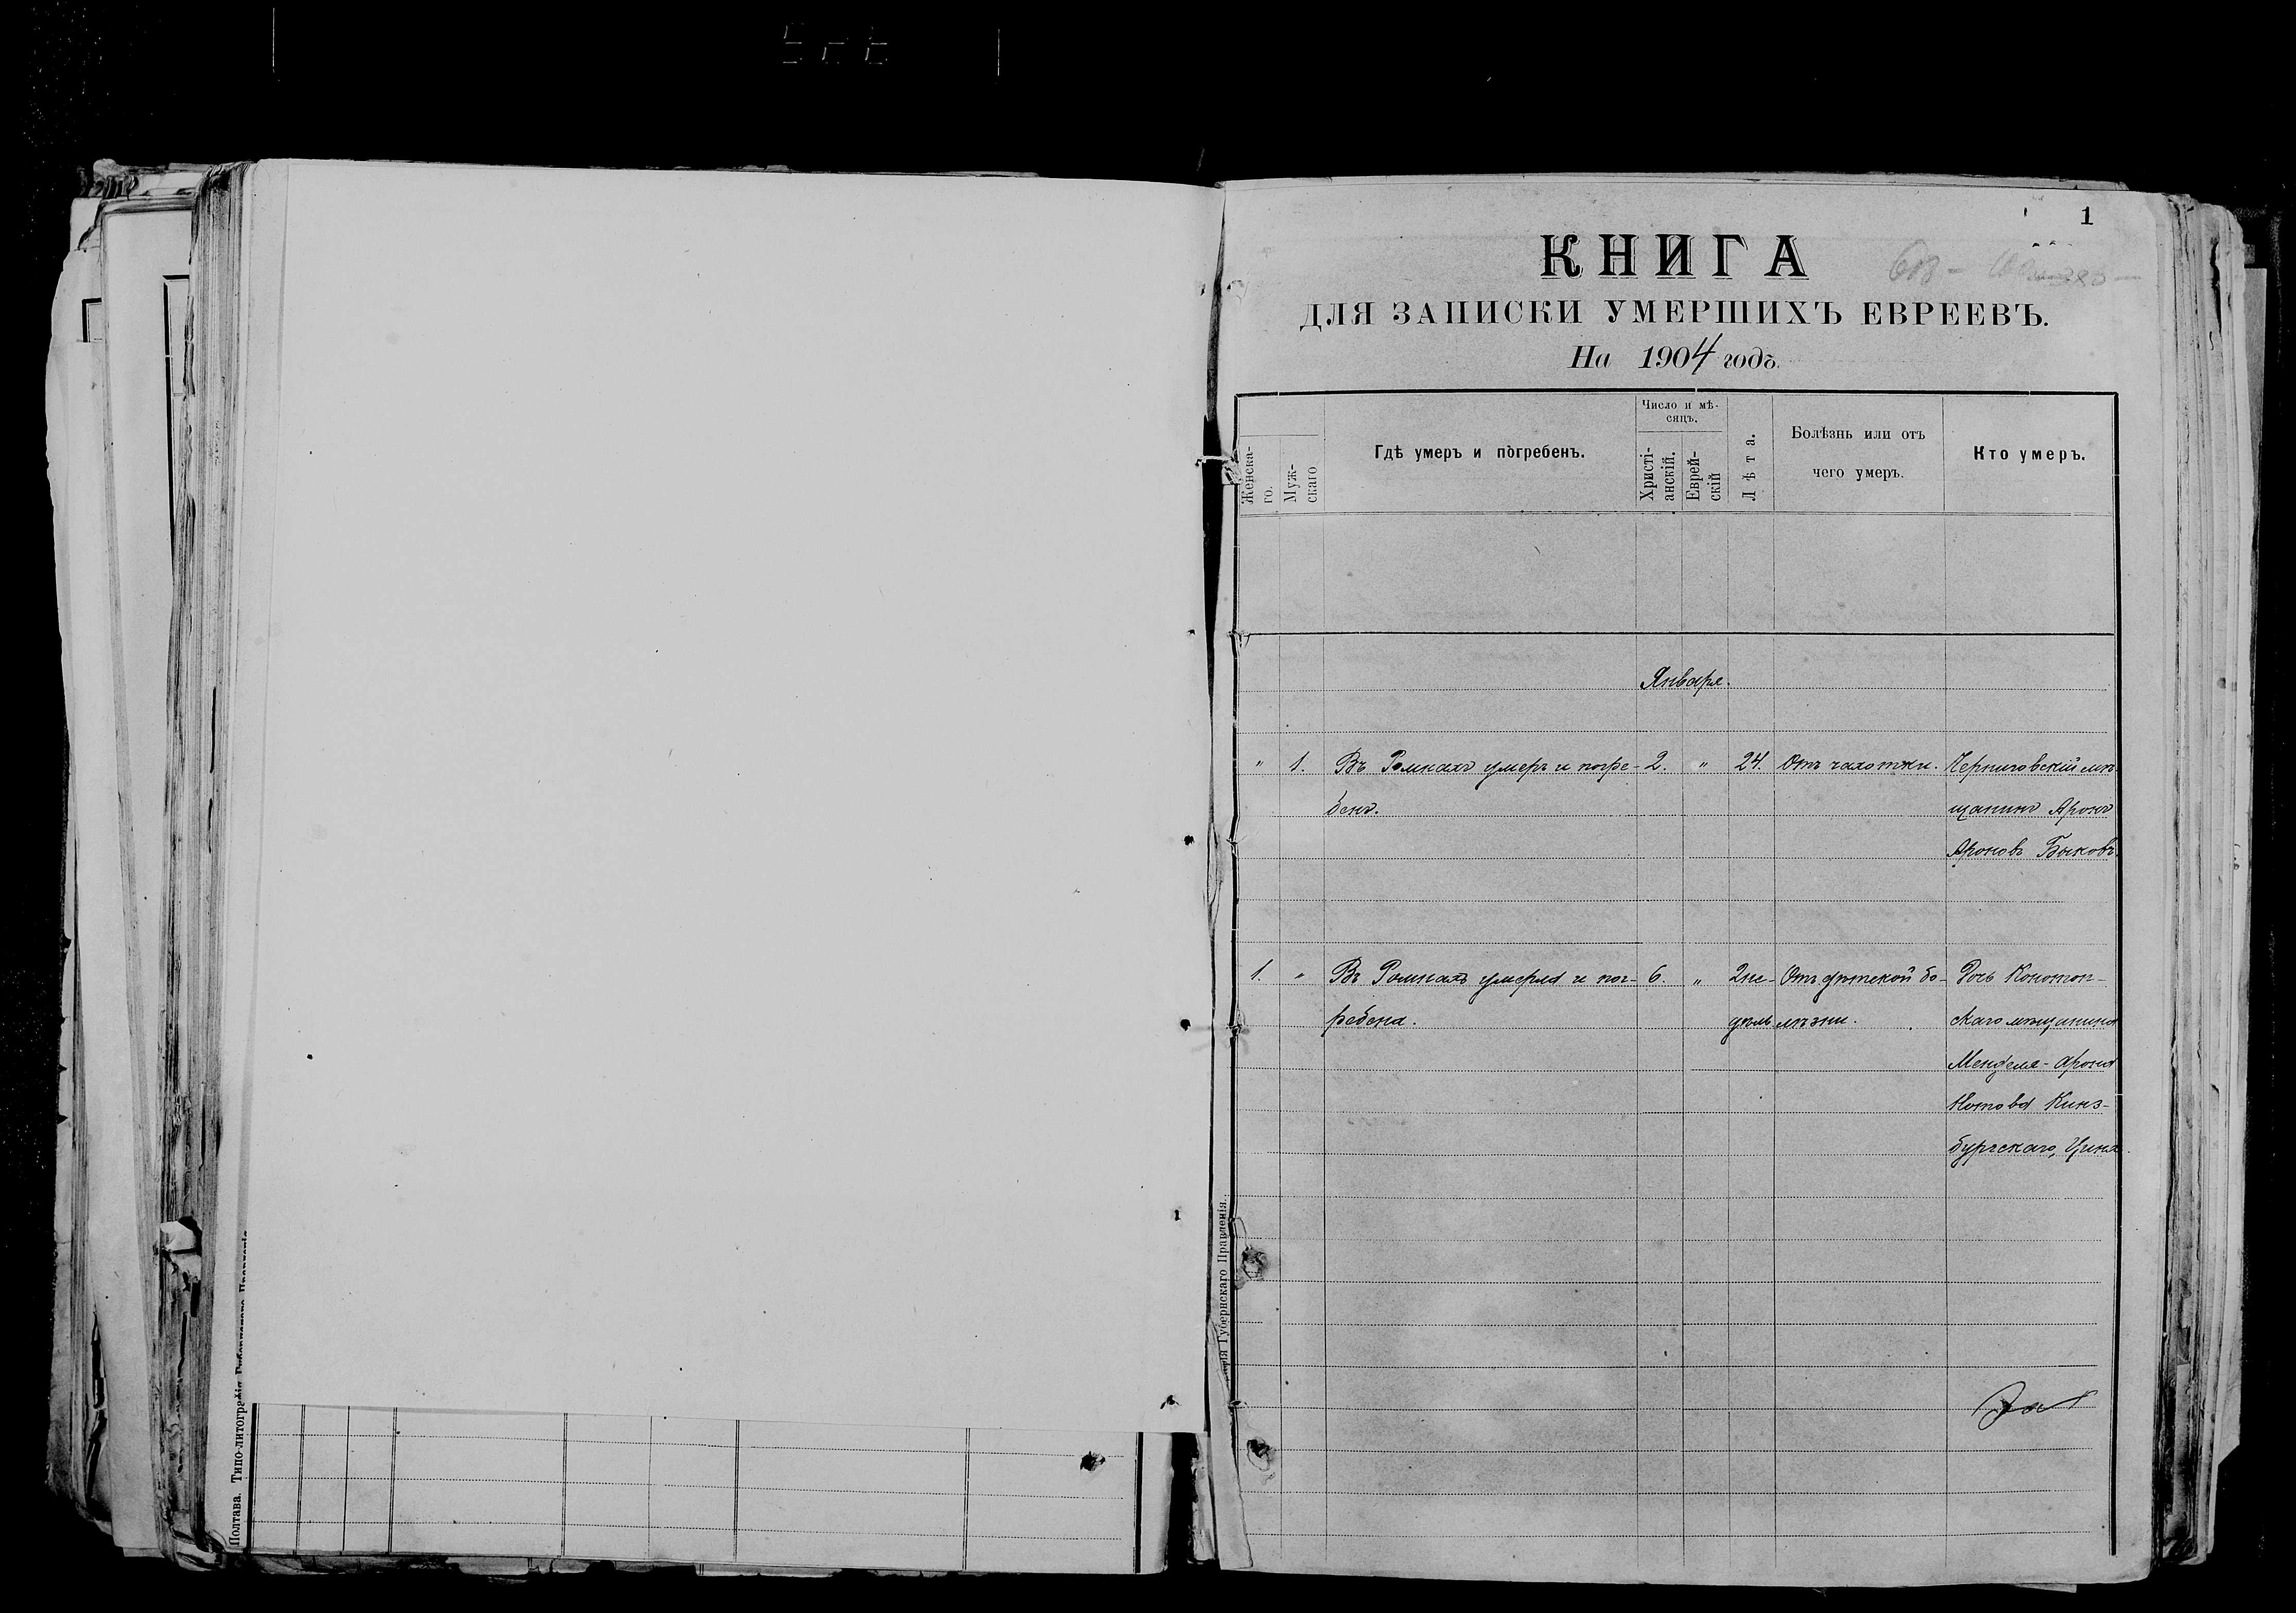 1
КНИГА
ДЛЯ ЗАПИСКИ УМЕРШИХЪ ЕВРЕЕВЪ.
На 1904 годъ.
Женска-
го.
Муж-
скаго
Гдѣ умеръ и погребенъ.
Число и мѣ-
сяцъ.
Христі-
анскій.
Еврей-
скій
Лѣта.
Болѣзнь или отъ
чего умеръ.
Кто умеръ.
Января.
" 1. Въ Ромнахъ умеръ и погре- 2. " 24. Отъ чахотки. Черниговскій мѣ-
бенъ. щанинъ Аронъ
Ароновъ Быковъ.
1. " Въ Ромнахъ умерла и пог- 6. " 2 не- Отъ дѣтской бо- Дочь Конотоп-
ребена. дѣль лѣзни. скаго мѣщанина
Менделя-Арона
Котова Кинз-
бургскаго,
Полтава. Типо-литографія Губернскаго Правленія.
Губернскаго Правленія.